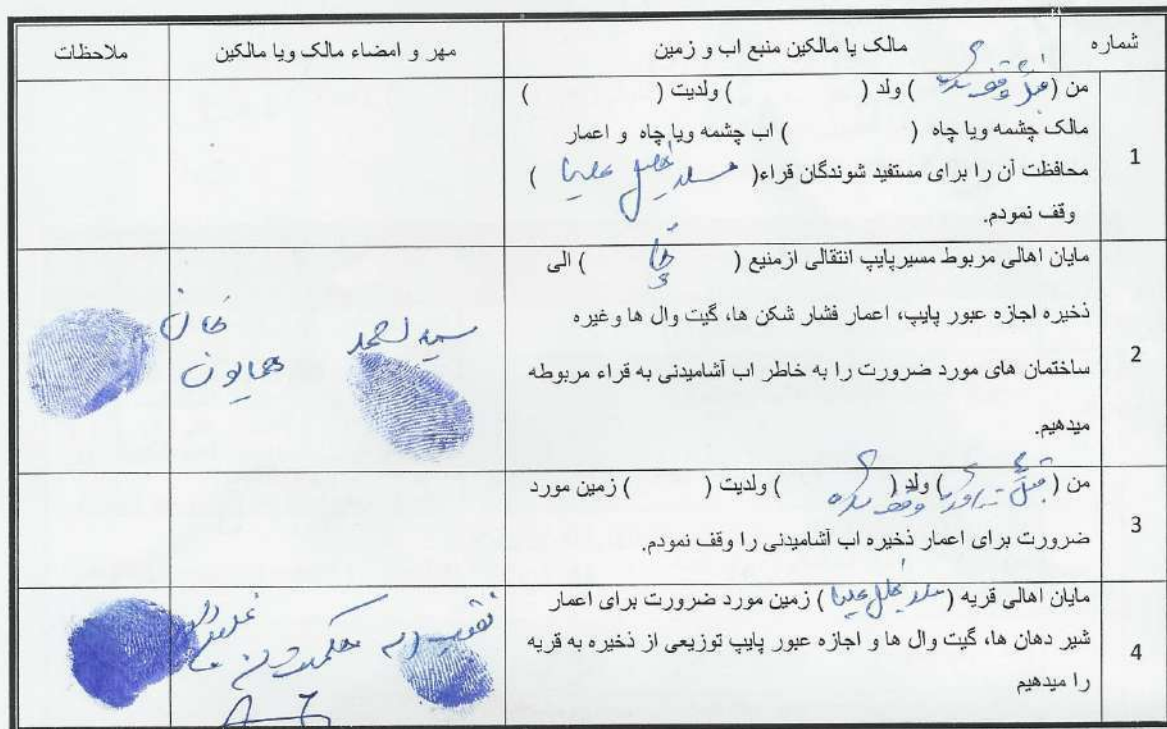 شماره	مالک یا مالکین منبع اب و زمین	مهر و امضاء مالک ویا مالکین	ملاحظات
1
من (قبلاً وقف شده) ولد ( ) ولدیت ( )
مالک چشمه ویا چاه ( ) اب چشمه ویا چاه و اعمار
محافظت آن را برای مستفید شوندگان قراء( علیا )
وقف نمودم.
2
مایان اهالی مربوط مسیرپایپ انتقالی ازمنبع ( ) الی
ذخیره اجازه عبور پایپ، اعمار فشار شکن ها، گیت وال ها وغیره
ساختمان های مورد ضرورت را به خاطر اب آشامیدنی به قراء مربوطه
میدهیم.
سید احمد
خان
همایون
3
من (قبلاً) ولد (وقف شده) ولدیت ( ) زمین مورد
ضرورت برای اعمار ذخیره اب آشامیدنی را وقف نمودم.
4
مایان اهالی قریه (علیا) زمین مورد ضرورت برای اعمار
شیر دهان ها، گیت وال ها و اجازه عبور پایپ توزیعی از ذخیره به قریه
را میدهیم